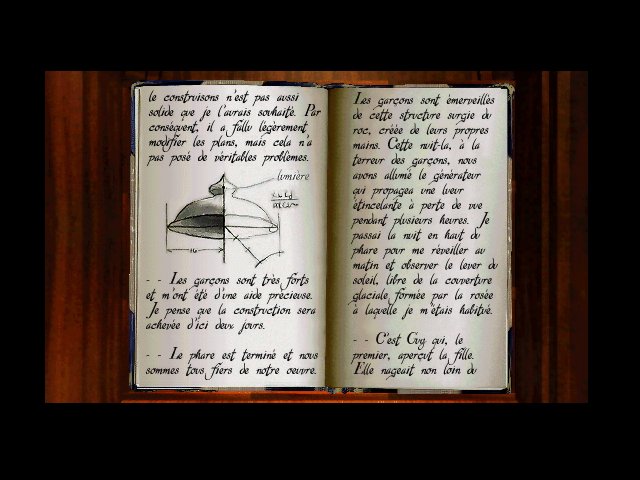 le construisons n'est pas aussi
solide que je l'aurais souhaité. Par
conséquent, il a fallu légèrement
modifier les plans, mais cela n'a
pas posé de véritables problèmes.
lumière
- - Les garçons sont très forts
et m'ont été d'une aide précieuse.
Je pense que la construction sera
achevée d'ici deux jours.
- - Le phare est terminé et nous
sommes tous fiers de notre oeuvre.
Les garçons sont émerveillés
de cette structure surgie du
roc, créée de leurs propres
mains. Cette nuit-la, à la
terreur des garçons, nous
avons allumé le générateur
qui propagea une lueur
étincelante à perte de vue
pendant plusieurs heures. Je
passai la nuit en haut du
phare pour me réveiller au
matin et observer le lever du
soleil, libre de la couverture
glaciale formée par la rosée
à laquelle je m'étais habitué.
- - C'est Guy qui, le
premier, aperçut la fille.
Elle nageait non loin du